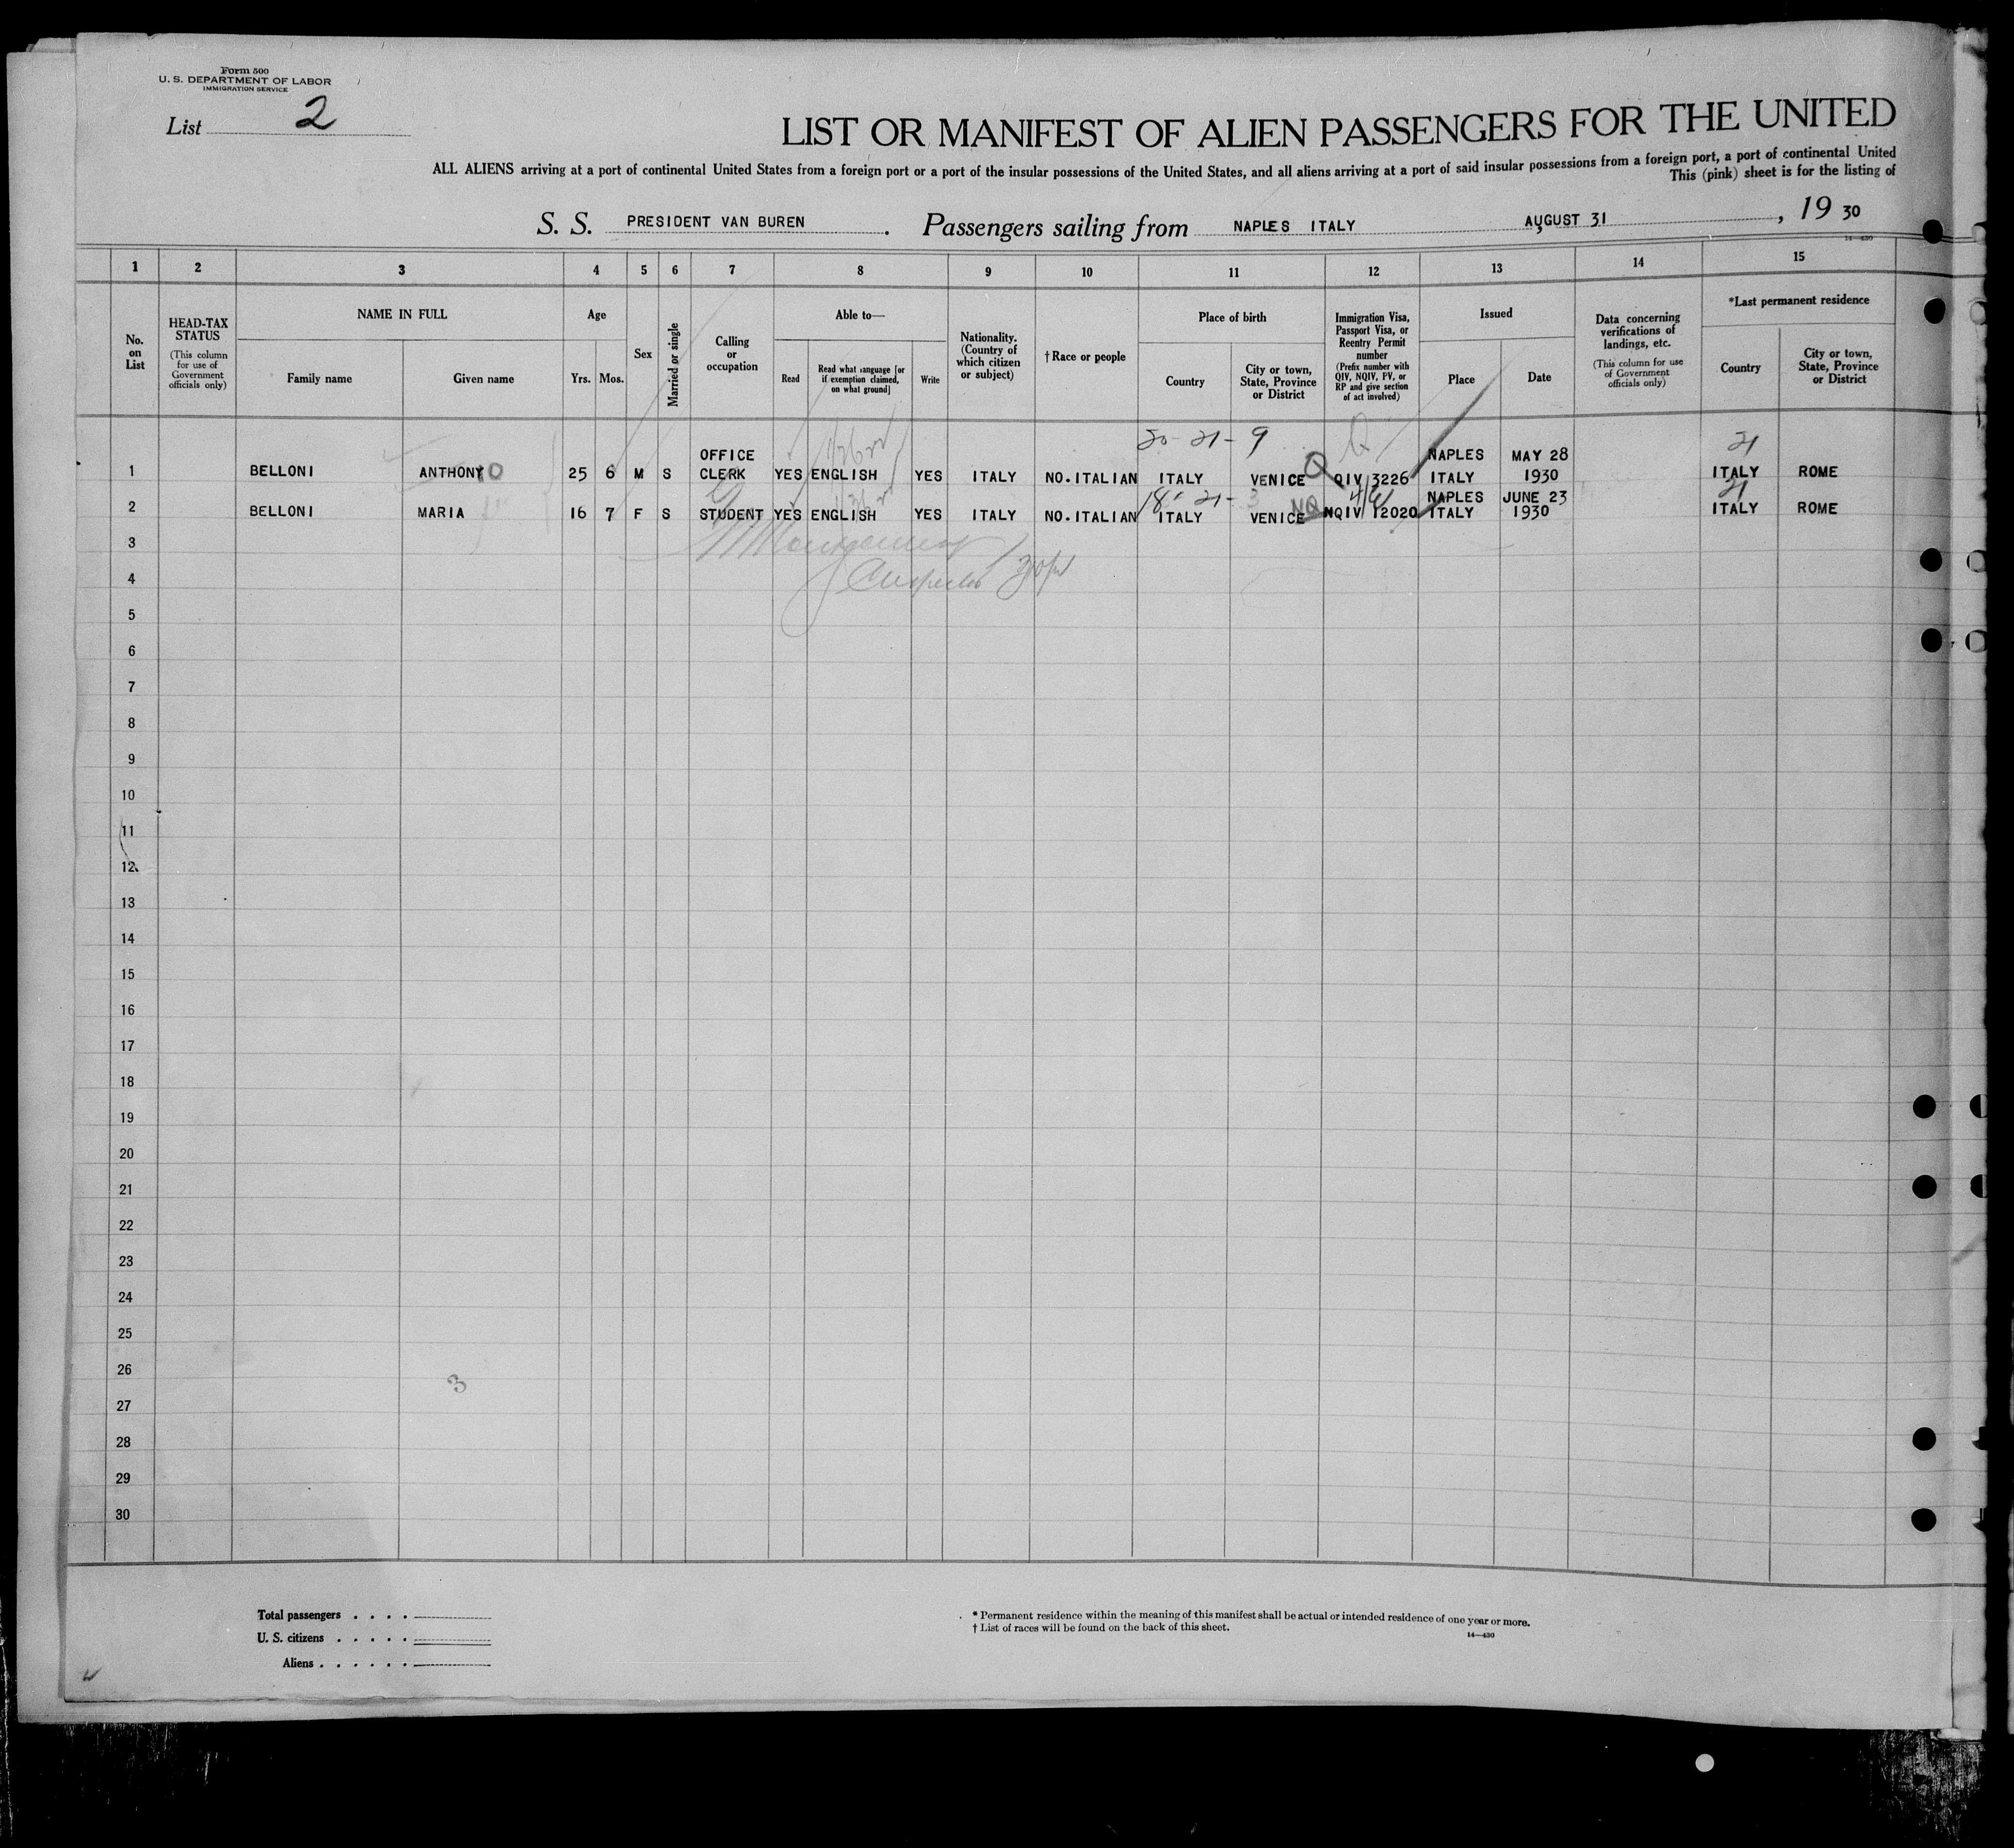 Form 500
U. S. DEPARTMENT OF LABOR
IMMIGRATION SERVICE
List 2
LIST OR MANIFEST OF ALIEN PASSENGERS FOR THE UNITED
ALL ALIENS arriving at a port of continental United States from a foreign port or a port of the insular possessions of the United States, and all aliens arriving at a port of said insular possessions from a foreign port, a port of continental United
This (pink) sheet is for the listing of
S. S. PRESIDENT VAN BUREN. Passengers sailing from NAPLES ITALY AUGUST 31, 19 30
14—430
1 2 3 4 5 6 7 8 9 10 11 12 13 14 15
No. on List
HEAD-TAX STATUS
(This column for use of Government officials only)
NAME IN FULL
Family name
Given name
Age
Yrs. Mos.
Sex
Married or single
Calling or occupation
Able to—
Read
Read what language [or if exemption claimed, on what ground]
Write
Nationality. (Country of which citizen or subject)
† Race or people
Place of birth
Country
City or town, State, Province or District
Immigration Visa, Passport Visa, or Reentry Permit number
(Prefix number with QIV, NQIV, PV, or RP and give section of act involved)
Issued
Place
Date
Data concerning verifications of landings, etc.
(This column for use of Government officials only)
*Last permanent residence
Country
City or town, State, Province or District
20-21-9 Q 21
OFFICE NAPLES MAY 28
1 BELLONI ANTHONYO 25 6 M S CLERK YES ENGLISH YES ITALY NO.ITALIAN ITALY VENICE Q QIV 3226 ITALY 1930 ITALY ROME
18-21-3 4/61 NAPLES JUNE 23 21
2 BELLONI MARIA 16 7 F S STUDENT YES ENGLISH YES ITALY NO.ITALIAN ITALY VENICE NQ NQIV 12020 ITALY 1930 ITALY ROME
3
4
5
6
7
8
9
10
11
12
13
14
15
16
17
18
19
20
21
22
23
24
25
26
3
27
28
29
30
Total passengers . . . .
U. S. citizens . . . . .
Aliens . . . . . .
* Permanent residence within the meaning of this manifest shall be actual or intended residence of one year or more.
† List of races will be found on the back of this sheet.
14—430